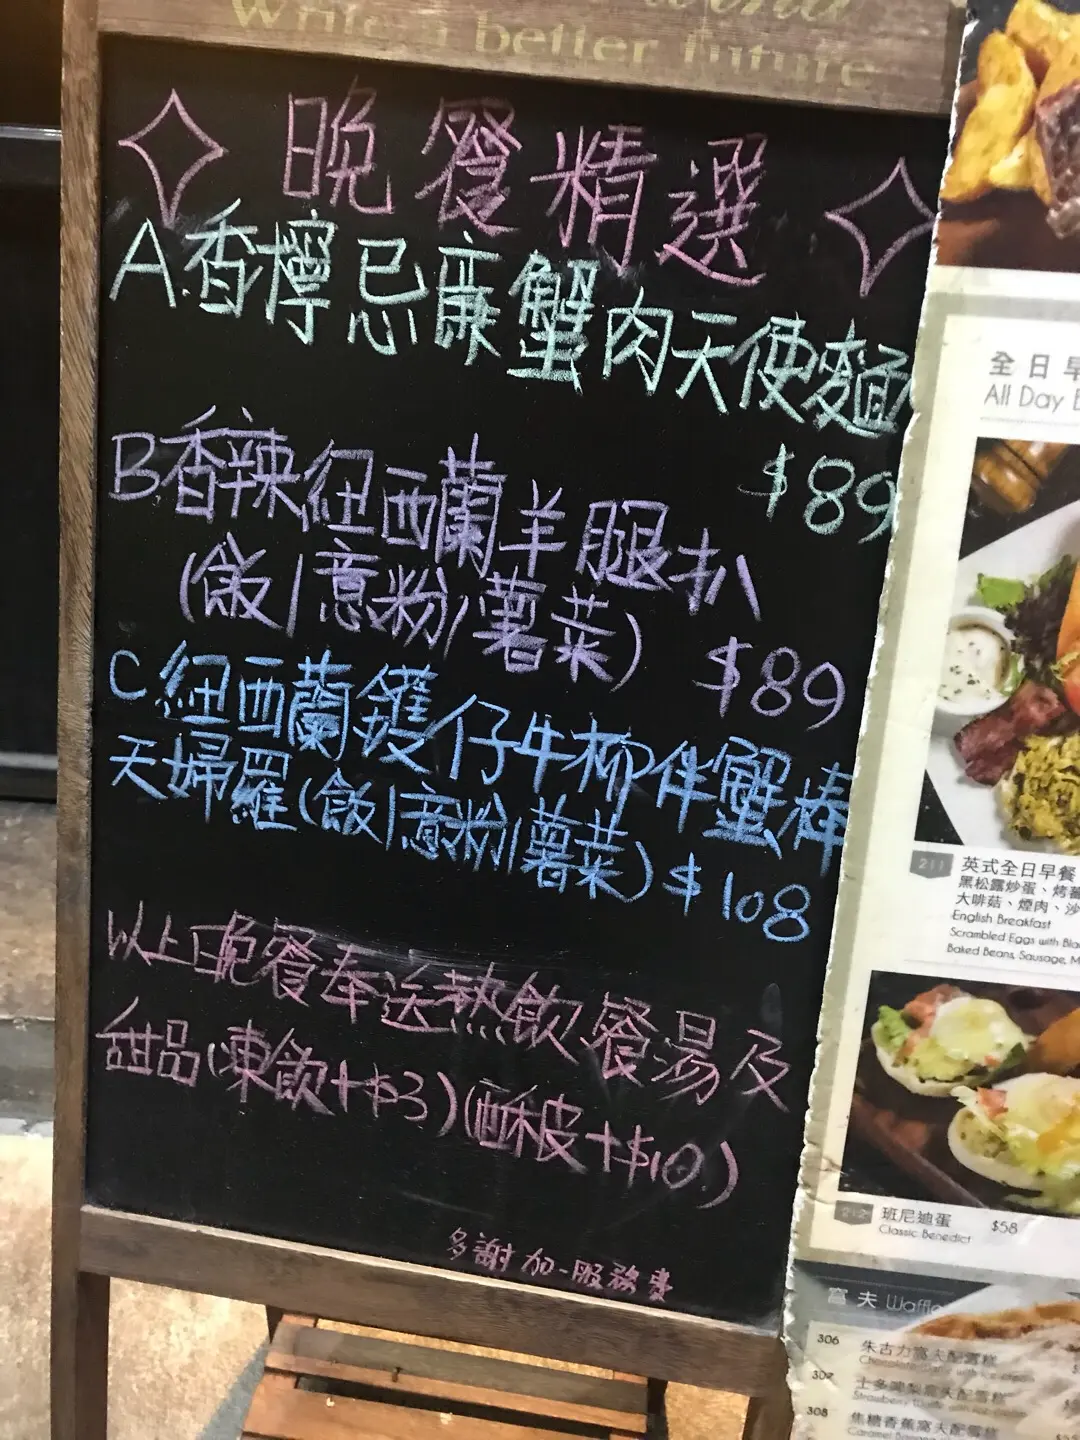 Write a better future
晚餐精選
A.香檸忌廉蟹肉天使麵
$89
B香辣紐西蘭羊腿扒
(飯/意粉/薯菜) $89
C紐西蘭鑊仔牛柳伴蟹棒
天婦羅(飯/意粉/薯菜) $108
以上晚餐奉送熱飲餐湯及
甜品(凍飲+$3)(酥皮+$10)
多謝加一服務費
全日早
All Day B
211
英式全日早餐
黑松露炒蛋、烤蕃
大啡菇、煙肉、沙
English Breakfast
Scrambled Eggs with Bla
Baked Beans, Sausage, M
212 班尼迪蛋 $58
Classic Benedict
窩夫 Waffle
306 朱古力窩夫配雪糕
307 士多啤梨窩夫配雪糕
308 焦糖香蕉窩夫配雪糕